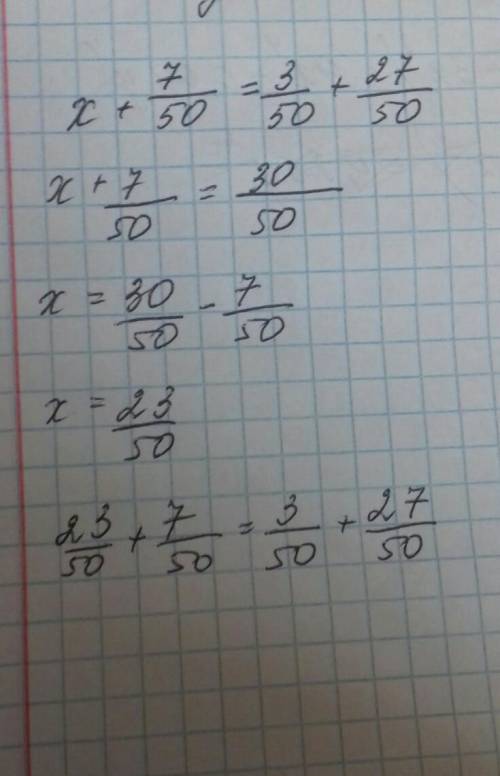 x + 7/50 = 3/50 + 27/50
x + 7/50 = 30/50
x = 30/50 - 7/50
x = 23/50
23/50 + 7/50 = 3/50 + 27/50